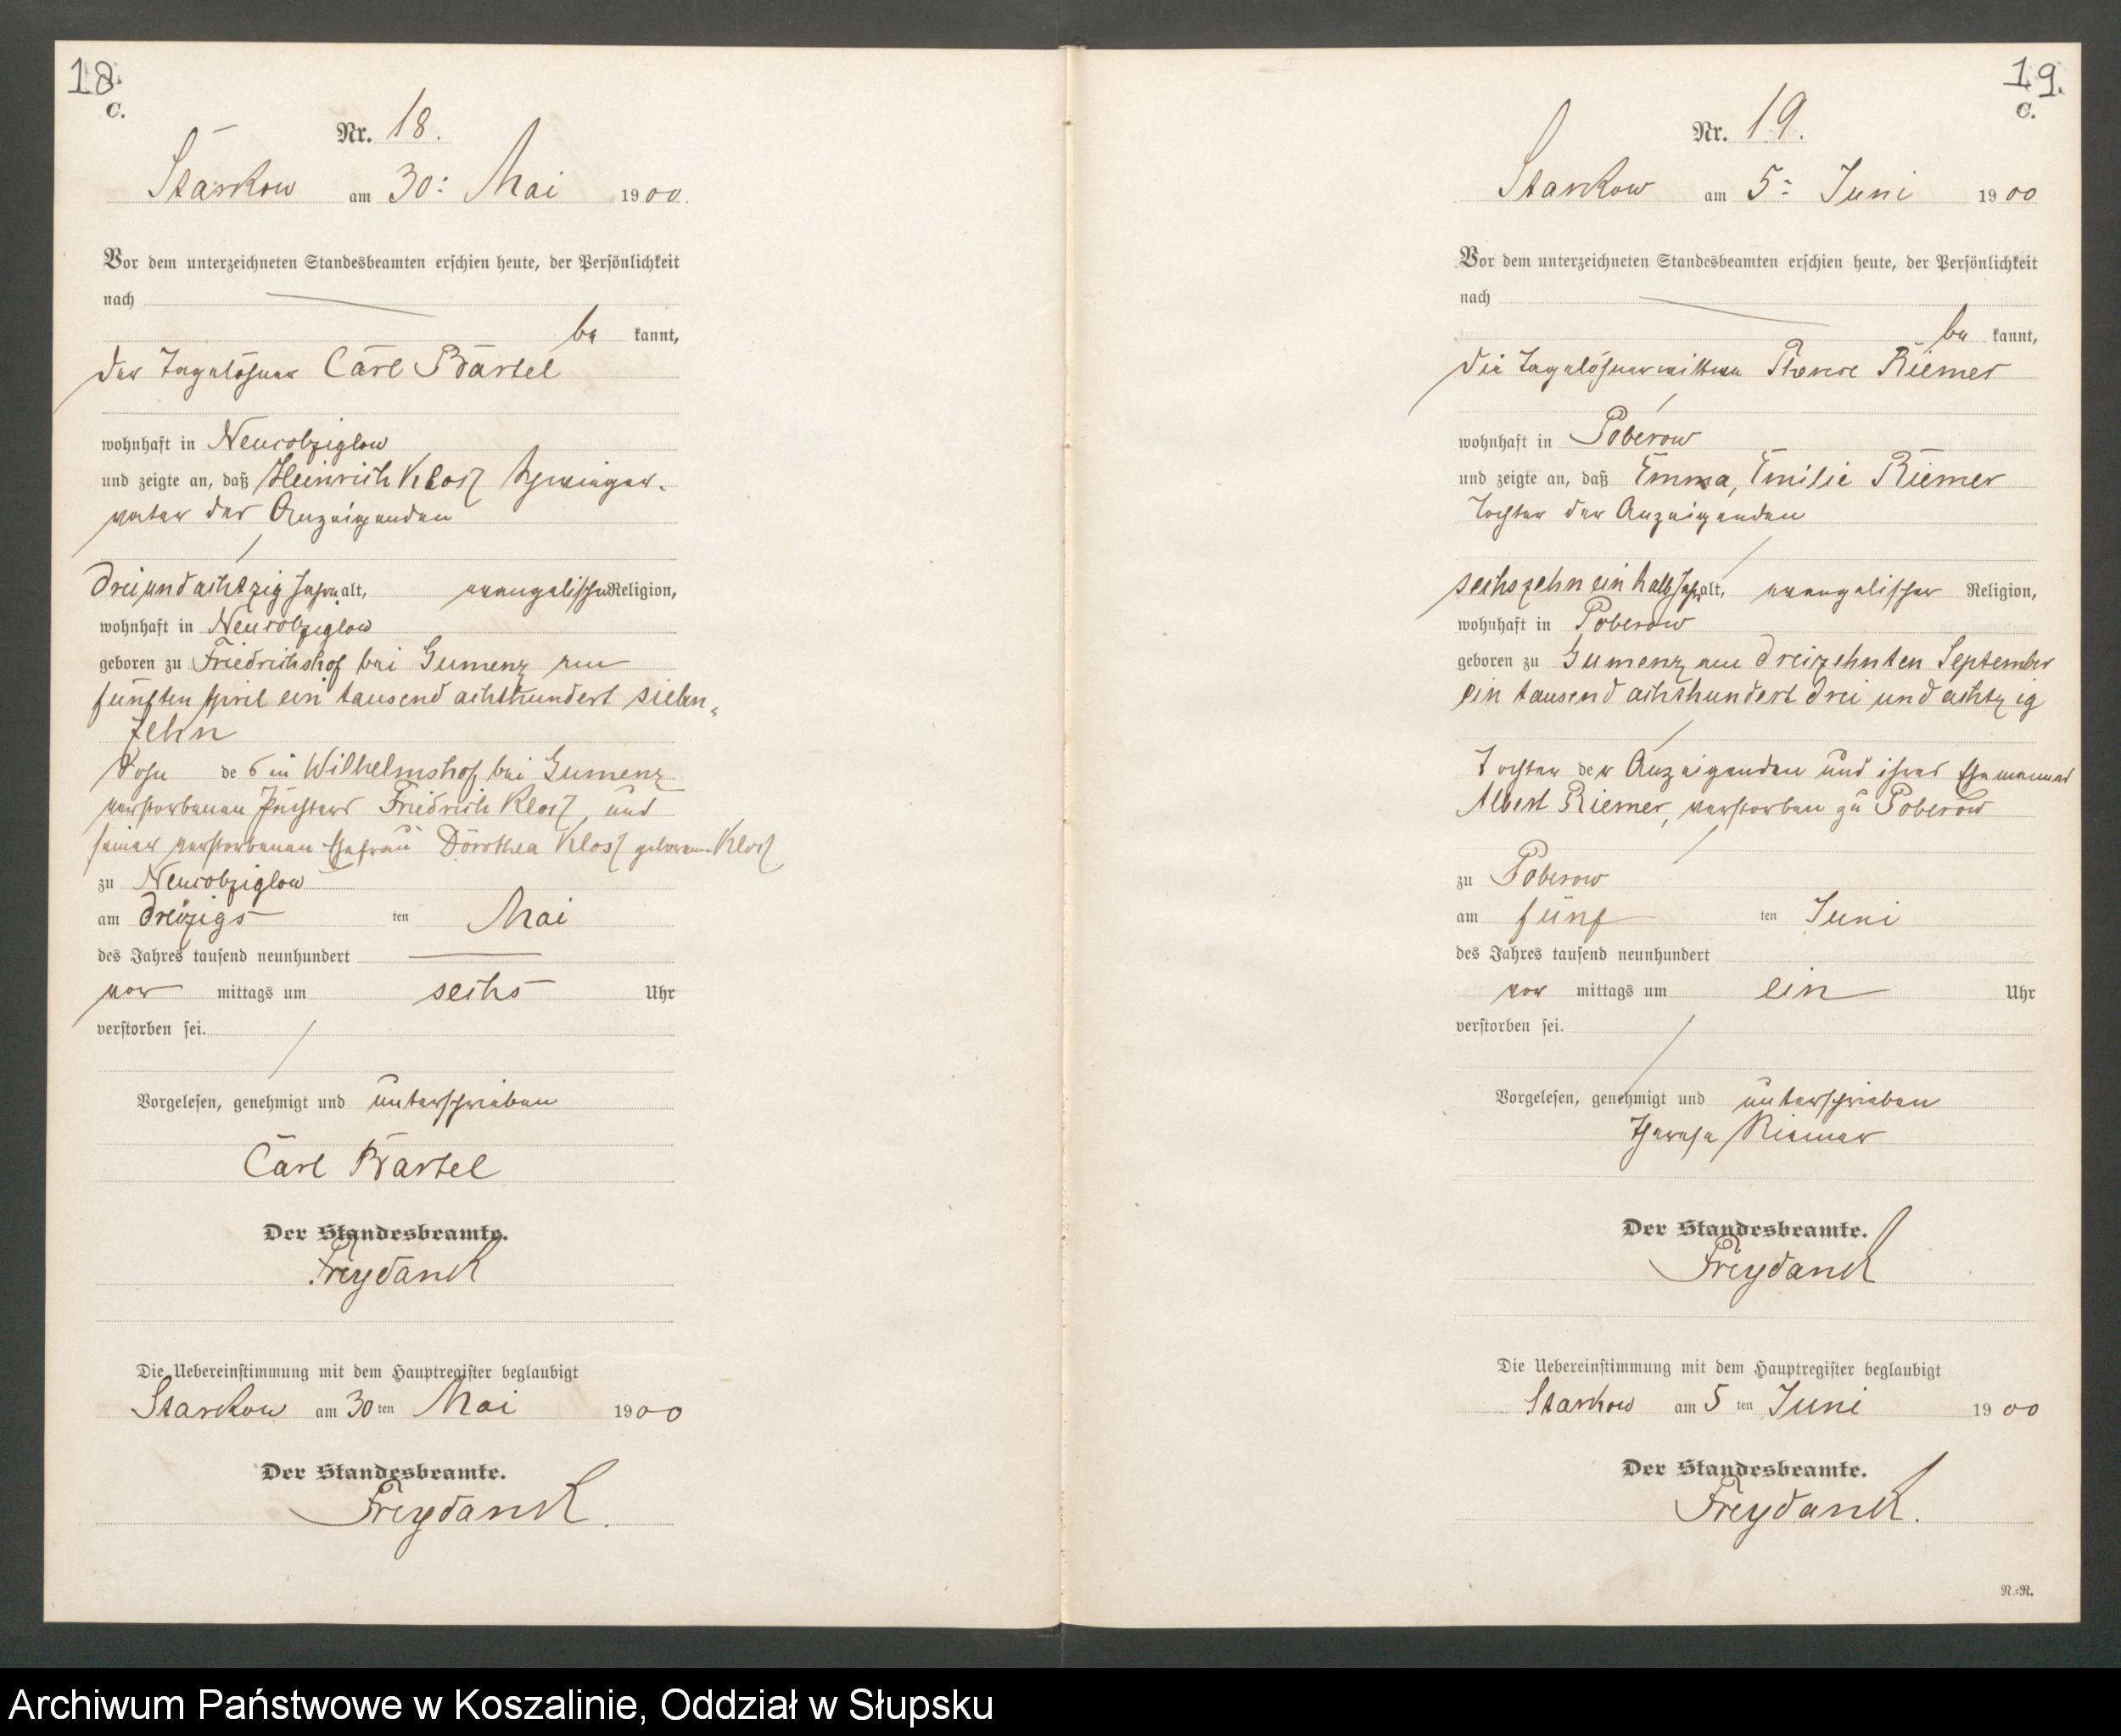 18.
C.
Nr. 18.
Starkow am 30: Mai 1900.
Vor dem unterzeichneten Standesbeamten erschien heute, der Persönlichkeit
nach
be kannt,
der Tagelöhner Carl Bartel
wohnhaft in Neucolziglow
und zeigte an, daß Heinrich Klosz Schwieger-
vater des Anzeigenden
dreiundachtzig Jahre alt, evangelischer Religion,
wohnhaft in Neucolziglow
geboren zu Friedrichshof bei Gumenz am
fünften April ein tausend achthundert sieben-
zehn
Sohn des in Wilhelmshof bei Gumenz
verstorbenen Pächters Friedrich Klosz, und
seiner verstorbenen Ehefrau Dorothea Klosz geborene Klosz
zu Neucolziglow
am dreizigs ten Mai
des Jahres tausend neunhundert
vor mittags um sechs Uhr
verstorben sei.
Vorgelesen, genehmigt und unterschrieben
Carl Bartel
Der Standesbeamte.
Freydank
Die Uebereinstimmung mit dem Hauptregister beglaubigt
Starkow am 30 ten Mai 1900
Der Standesbeamte.
Freydank.
19.
C.
Nr. 19.
Starkow am 5: Juni 1900
Vor dem unterzeichneten Standesbeamten erschien heute, der Persönlichkeit
nach
be kannt,
die Tagelöhnerwittwe Therese Riemer
wohnhaft in Poberow
und zeigte an, daß Emma, Emilie Riemer
Tochter der Anzeigenden
sechszehn ein halb Jahr alt, evangelischer Religion,
wohnhaft in Poberow
geboren zu Gumenz am dreizehnten September
ein tausend achthundert drei und achtzig
Tochter der Anzeigenden und ihres Ehemannes
Albert Riemer, verstorben zu Poberow
zu Poberow
am fünf ten Juni
des Jahres tausend neunhundert
vor mittags um ein Uhr
verstorben sei.
Vorgelesen, genehmigt und unterschrieben
Therese Riemer
Der Standesbeamte.
Freydank
Die Uebereinstimmung mit dem Hauptregister beglaubigt
Starkow am 5 ten Juni 1900
Der Standesbeamte.
Freydank.
N.=R.
Archiwum Państwowe w Koszalinie, Oddział w Słupsku